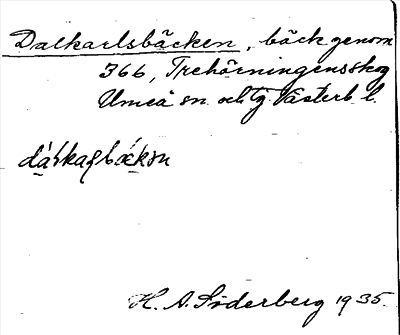 Dalkarlsbäcken, bäck genom
366, Trehörningensskog
Umeå sn. och tg. Västerb. l.
H. A. Söderberg 1935.